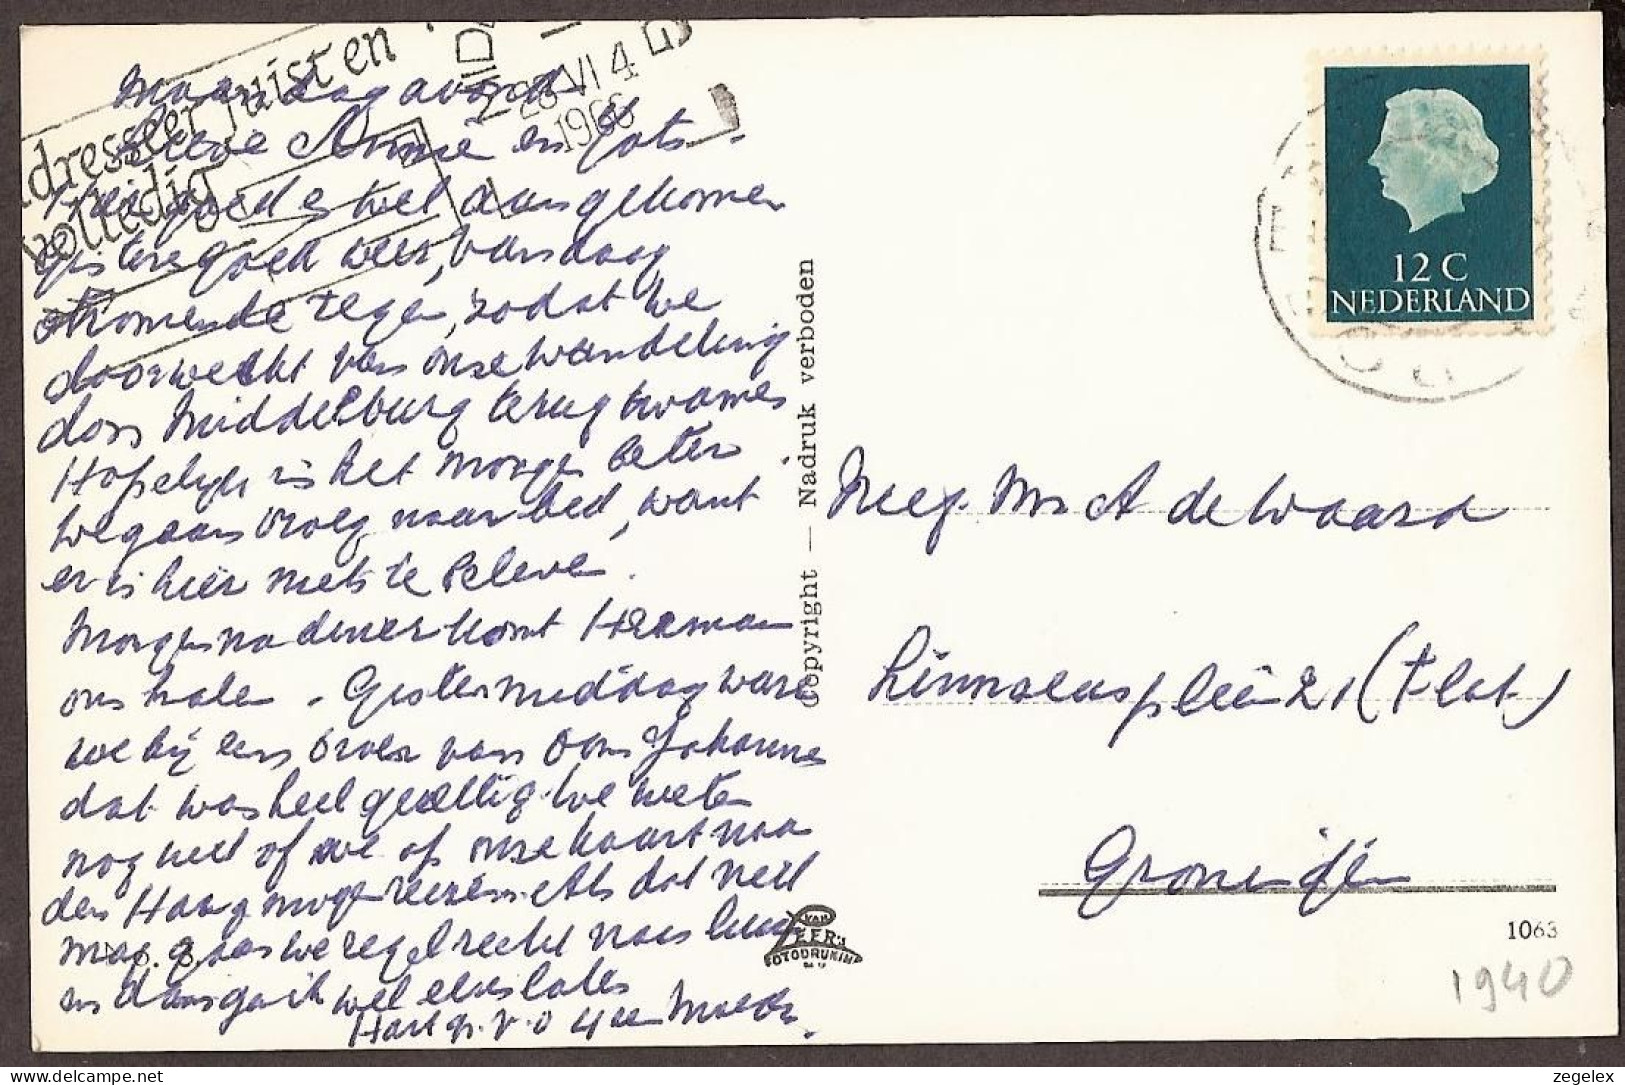 Adresseer juisten
volledig
28 VI 4
1966
Maandagavond
Lieve Annie en
goed en wel aangekomen
gisteren goed weer, vandaag
stromende regen, zodat we
doorweekt van onze wandeling
door Middelburg terugkwamen
Hopelijk is het morgen beter.
We gaan vroeg naar bed, want
er is hier niets te beleven.
Morgen na diner komt Herman
ons halen. Gistermiddag waren
we bij een broer van Oom Johannes
dat was heel gezellig. We weten
nog niet of we op onze kaart naar
den Haag mogen reizen. Als dat niet
mag, gaan we regelrecht naar huis
en dan ga ik wel eens later
Hart. gr. v. o Moeder.
Copyright — Nadruk verboden
VAN
LEER'S
FOTODRUKIND
N.V.
12 C
NEDERLAND
Mej. Mr A de Waard
Linnaeusplein 21 (Flat)
Groningen
1063
1940
zegelex